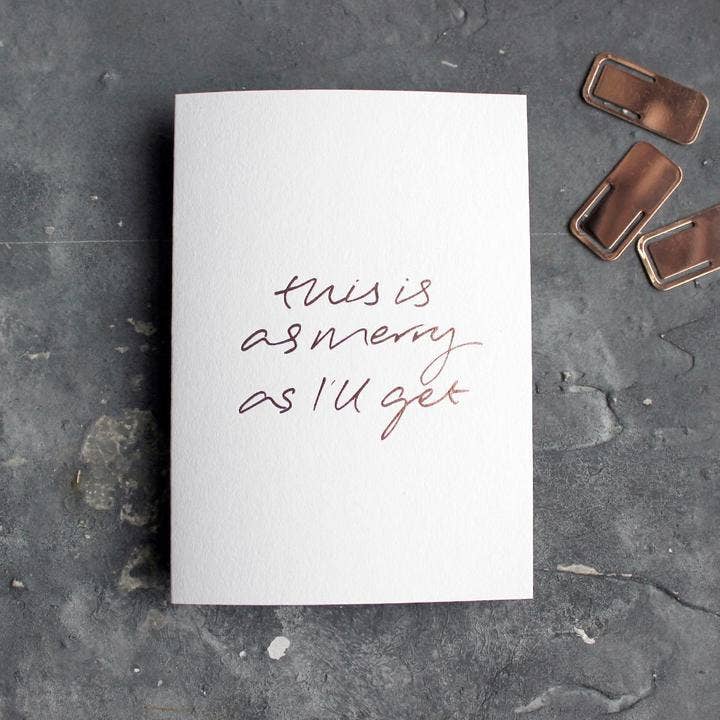 this is
as merry
as I'll get